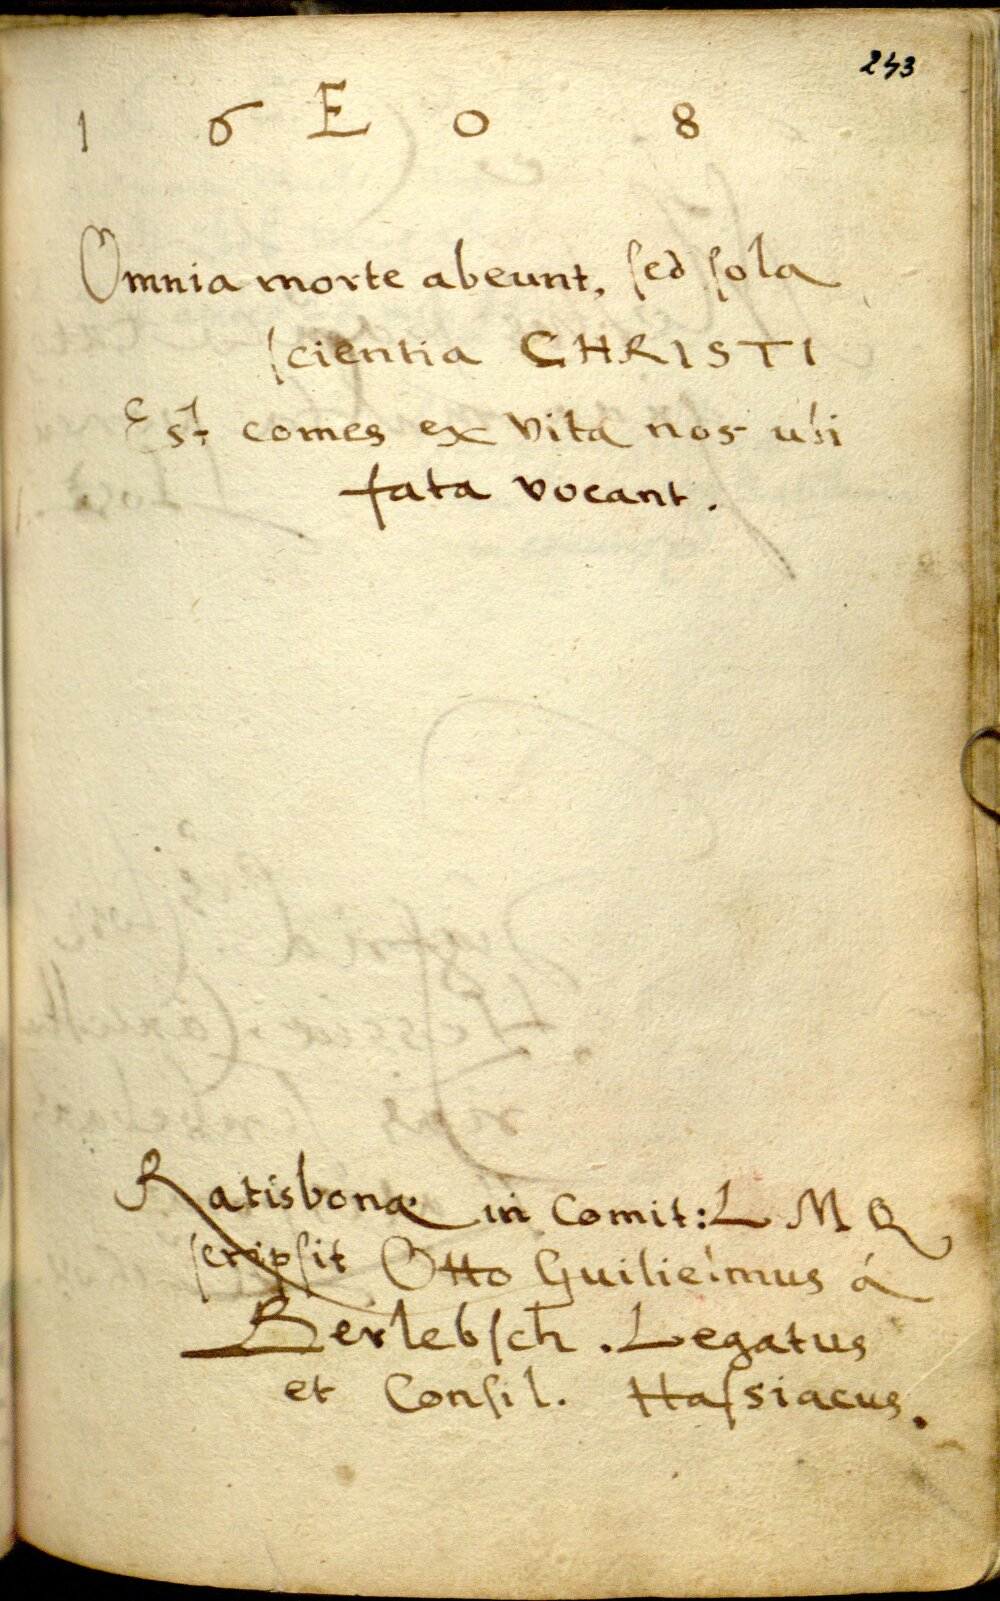 243
1 6 E 0 8
Omnia morte abeunt, sed sola
scientia CHRISTI
Est comes ex vita nos ubi
fata vocant.
Ratisbonæ in Comit: L M Q
scripsit Otto Guilielmus á
Berlebsch. Legatus
et Consil. Hassiacus.